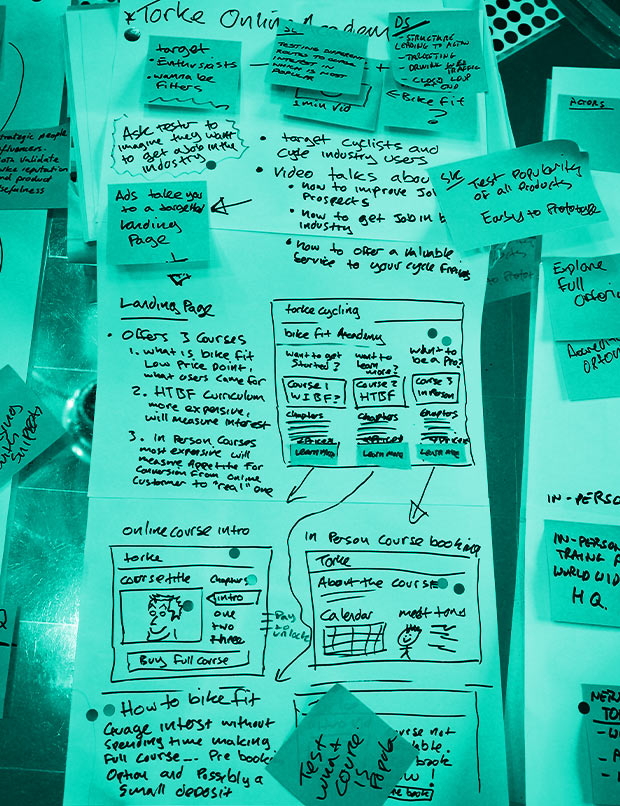 Torke Online Academy
target
• Enthusiasts
• wanna be
fitters
TESTING DIFFERENT
ROUTES TO GUAGE
INTEREST IN
WHICH IS MOST
POPULAR
1 min vid
DS/
- STRUCTURE
LEADING TO ACTION
- TARGETING
- DRIVING
TRAFFIC
- CLOSED LOOP
AT END
Bike fit
?
Ask testor to
imagine they want
to get a job in the
industry
• target cyclists and
cycle industry users
• Video talks about
• how to improve Job
Prospects
• how to get Job in
industry
• how to offer a valuable
Service to your cycle
Ads take you
to a targetted
Landing
Page
Test Popularity
of all Products
Easy to Prototype
ACTORS
Explore
Full
strategic people
influencers.
Data validate
reputation
and product
usefulness
Landing Page
• Offers 3 Courses
1. what is bike fit
Low Price point,
what users came for
2. HTBF Curriculum
more expensive,
will measure interest
3. in Person Courses
most expensive will
measure Appetite for
Conversion from online
Customer to "real" one
torke cycling
bike fit Academy
want to get
Started?
want to
learn
more?
want to
be a Pro?
Course 1
WIBF?
Course 2
HTBF
Course 3
in Person
Chapters
Chapters
Chapters
Learn More
Learn More
Learn More
with
Snippets
online course intro
torke
course title
Chapters
intro
one
two
three
Buy Full course
Pay
to
unlock
in Person Course booking
Torke
About the Course
Calendar
meet tony
IN-PERSON
TRAING
WORLD WID
H.Q.
How to bike fit
Guage interst without
spending time making
Full course... Pre book
Option and Possibly a
Small deposit
Test
what
course
is
Popular
course not
book